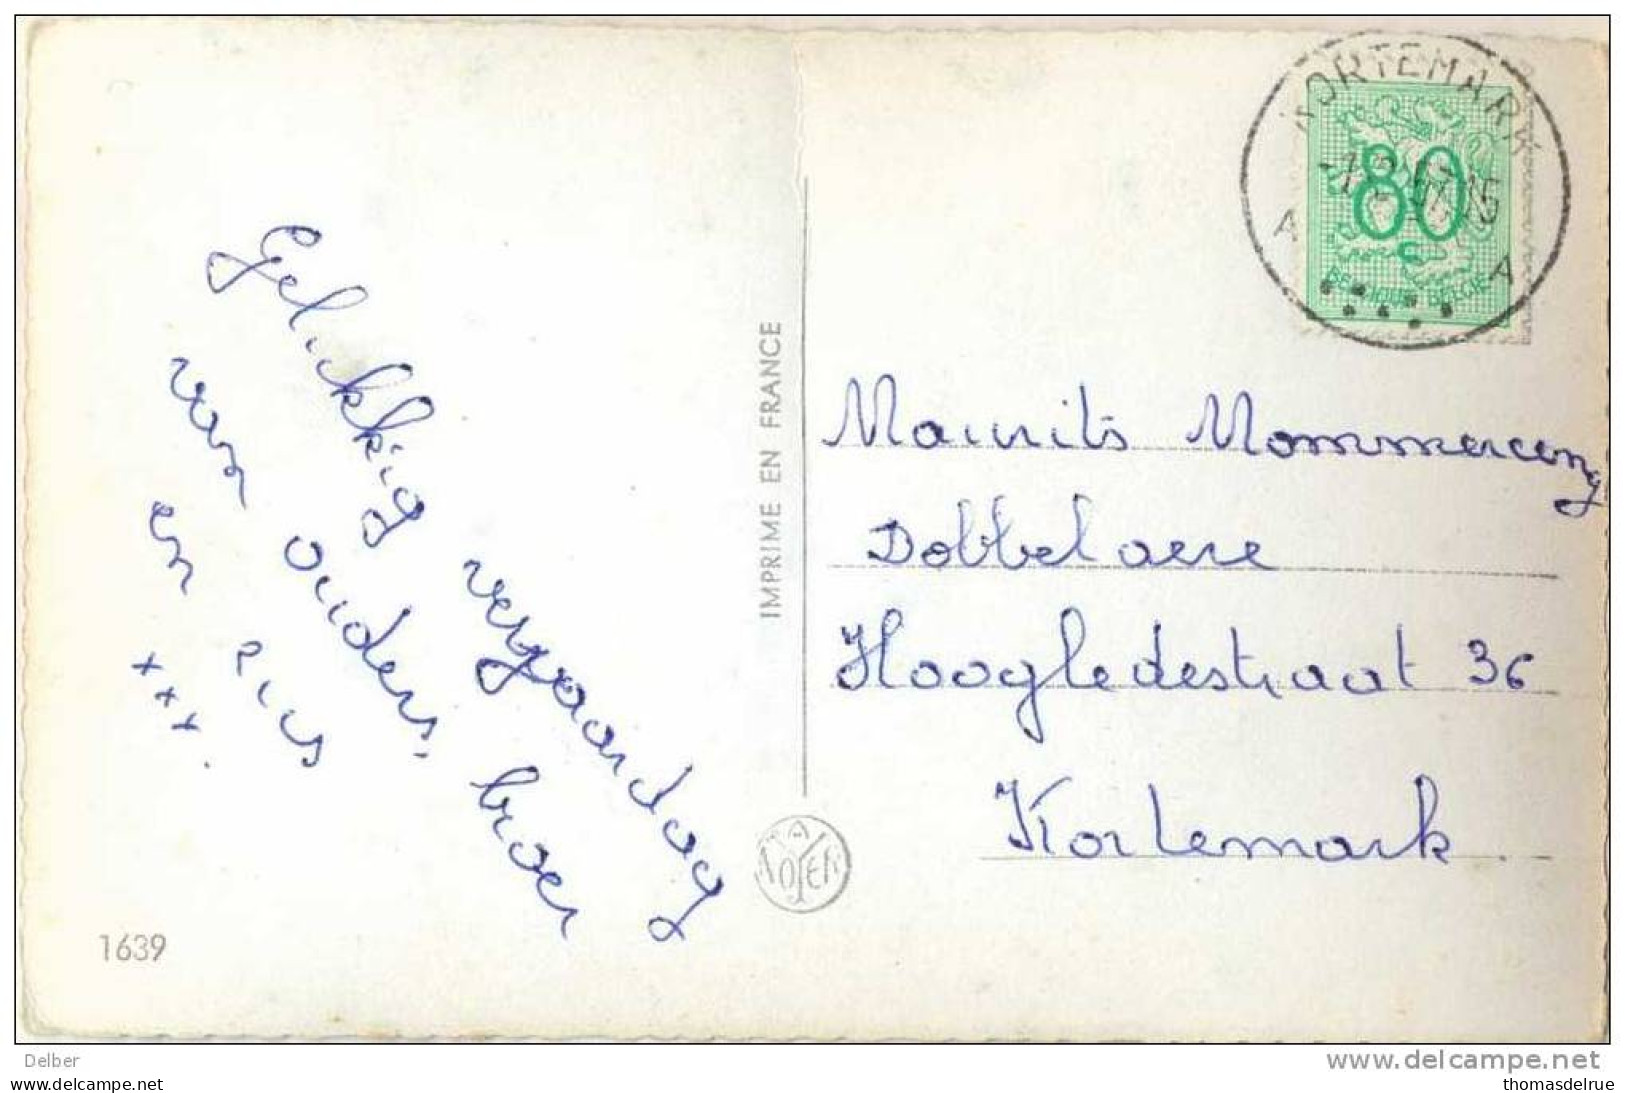 Gelukkig verjaardag
van ouders, broer
en zus
xxx.
1639
IMPRIME EN FRANCE
KORTEMARK
A A
80
BELGIQUE BELGIE
Maurits
Dobbelaere
Hoogledestraat 36
Kortemark
Delber
delcampe.net
thomasdelrue